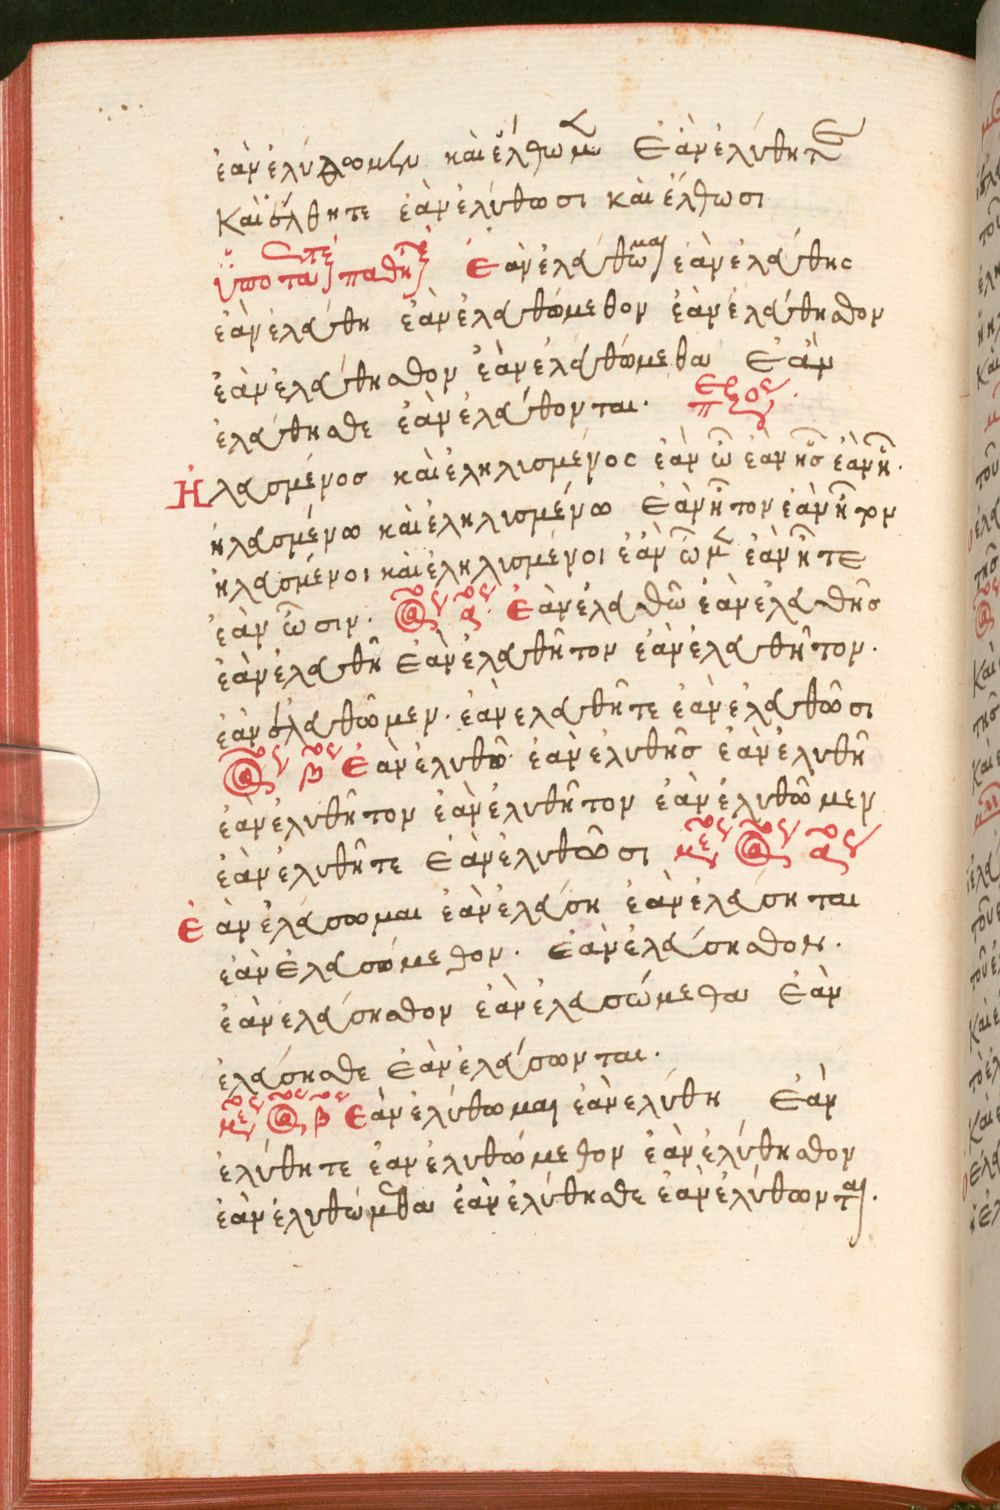 ἐὰν ἐλύθωμεν καὶ ἔλθωμ Ἐὰν ἐλύθητε
Καὶ ἔλθητε ἐὰν ἐλύθωσι καὶ ἔλθωσι
ὑποτα παθη Ἐὰν ἐλάθωμαι ἐὰν ἐλάθης
ἐὰν ἐλάθη ἐὰν ἐλαθώμεθον ἐὰν ἐλάθησθον
ἐὰν ἐλάθησθον ἐὰν ἐλαθώμεθα Ἐὰν
ἐλάθησθε ἐὰν ἐλάθονται.
Ἠλασμένος καὶ ἐληλισμένος ἐὰν ὦ ἐὰν ἦς ἐὰν ἦ.
ἠλασμένω καὶ ἐληλισμένω Ἐὰν ἦτον ἐὰν ἦτον
ἠλασμένοι καὶ ἐληλισμένοι ἐὰν ὦμ ἐὰν ἦτε
ἐὰν ὦσιν. Ἐὰν ἐλαθῶ ἐὰν ἐλαθῆς
ἐὰν ἐλαθῆ Ἐὰν ἐλαθῆτον ἐὰν ἐλαθῆτον.
ἐὰν ἐλαθῶμεν. ἐὰν ἐλαθῆτε ἐὰν ἐλαθῶσι
Ἐὰν ἐλυθῶ ἐὰν ἐλυθῆς ἐὰν ἐλυθῆ
ἐὰν ἐλυθῆτον ἐὰν ἐλυθῆτον ἐὰν ἐλυθῶμεν
ἐὰν ἐλυθῆτε Ἐὰν ἐλυθῶσι
Ἐὰν ἐλάσωμαι ἐὰν ἐλάση ἐὰν ἐλάσηται
ἐὰν Ἐλασώμεθον. Ἐὰν ἐλάσησθον.
ἐὰν ἐλάσησθον ἐὰν ἐλασώμεθα Ἐὰν
ἐλάσησθε Ἐὰν ἐλάσωνται.
Ἐὰν ἐλύθωμαι ἐὰν ἐλύθη Ἐὰν
ἐλύθητε ἐὰν ἐλυθώμεθον ἐὰν ἐλύθησθον
ἐὰν ἐλυθώμεθα ἐὰν ἐλύθησθε ἐὰν ἐλύθωνται.